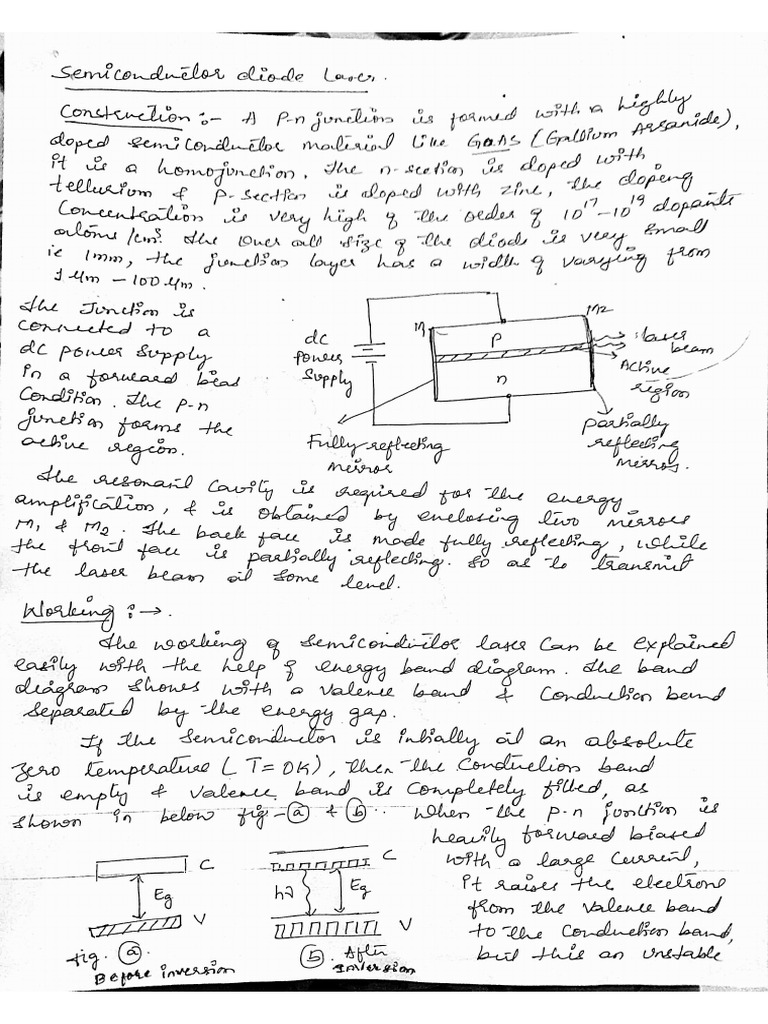 Semiconductor diode Laser.
Construction :- A P-n junction is formed with a highly
doped semiconductor material like GaAs (Gallium Arsanide),
it is a homojunction. The n-section is doped with
tellusium & P-section is doped with zinc, the dopeng
Concentration is very high of the order of 10¹⁷-10¹⁹ dopants
atoms/cm³. The over all size of the diode is very small
ie 1mm, the junction layer has a width of varying from
1 μm - 100 μm.
The Junction is
connected to a
dc power supply
in a forward bias
condition. The p-n
junction forms the
active region.
dc
power
supply
M1
M2
P
n
laser
beam
Active
region
Fully reflecting
mirror
partially
reflecting
mirror.
The resonant cavity is required for the energy
amplification, & is obtained by enclosing two mirrors
M1 & M2. The back face is made fully reflecting, while
the front face is partially reflecting. So as to transmit
the laser beam at some level.
Working :→.
The working of semiconductor laser can be explained
easily with the help of energy band diagram. The band
diagram shows with a valence band & conduction band
separated by the energy gap.
If the semiconductor is intially at an absolute
zero temperature (T=0K), then the conduction band
is empty & valence band is completely filled, as
shown in below fig-ⓐ & ⓑ. When the p-n junction is
heavily forward biased
with a large current,
it raises the electrons
from the valence band
to the conduction band,
but this an unstable
C
Eg
V
fig. ⓐ.
Before inversion
C
hν
Eg
V
ⓑ. After
inversion